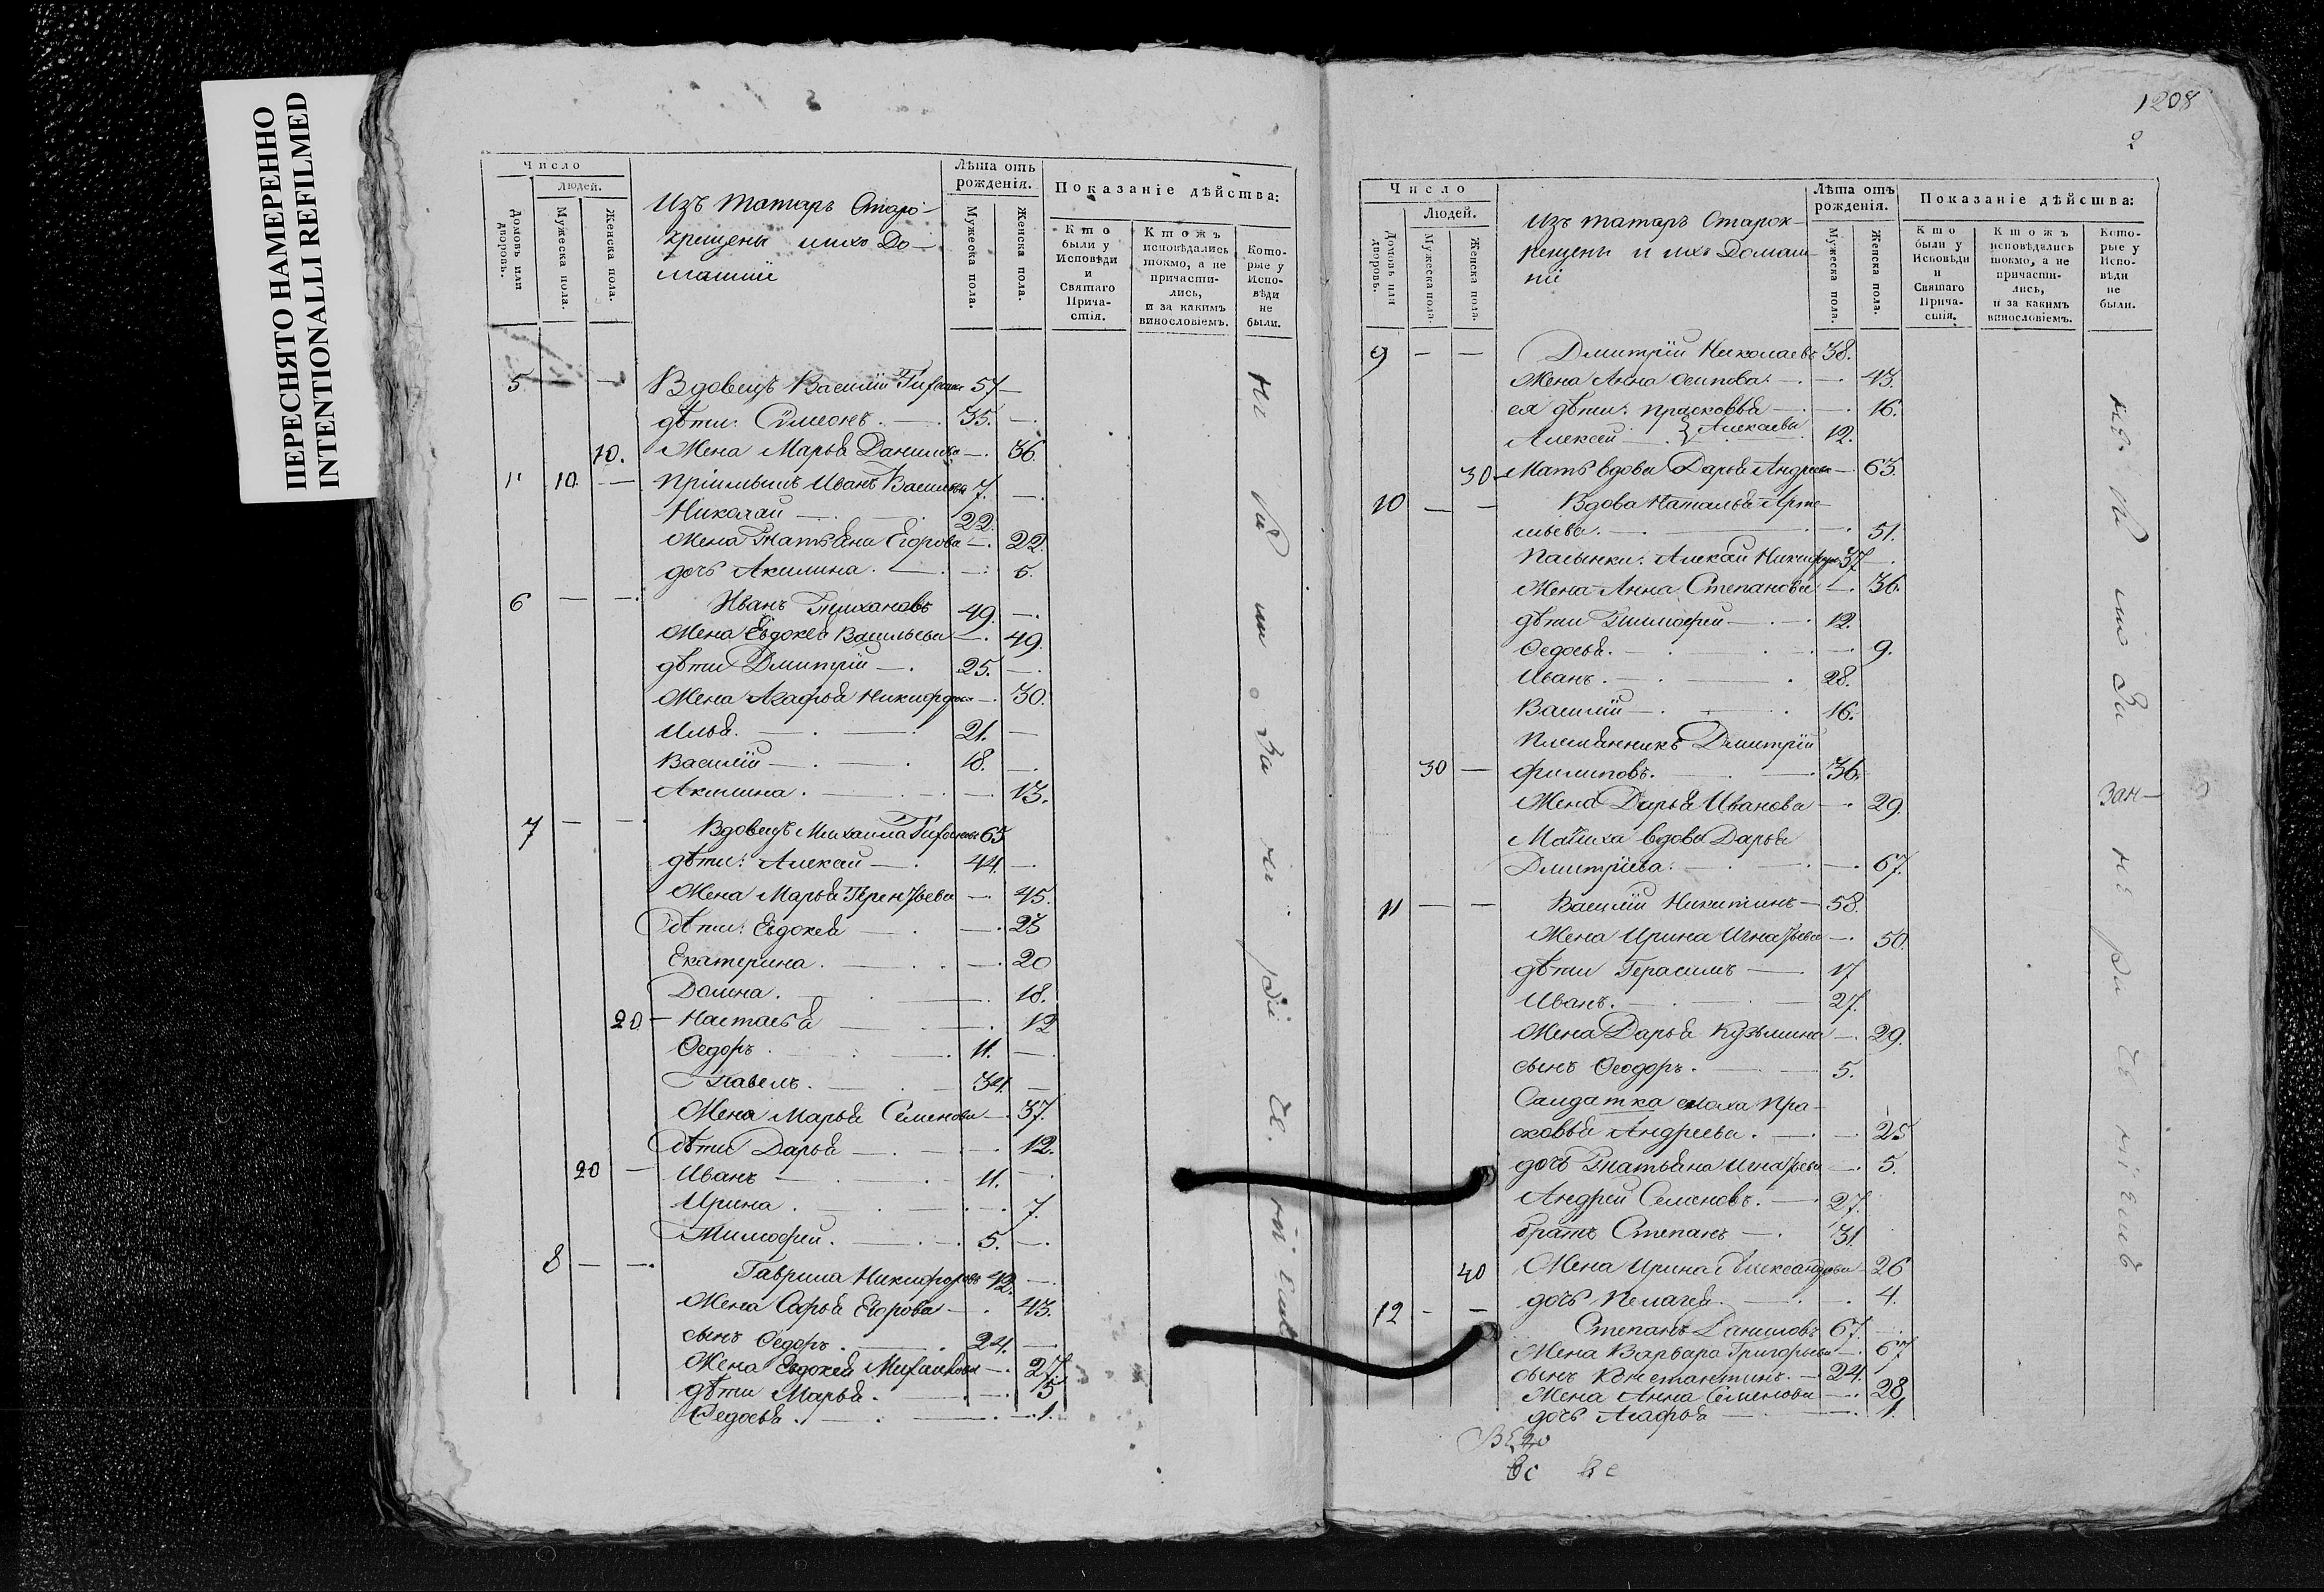 ПЕРЕСНЯТО НАМЕРЕННО
INTENTIONALLI REFILMED
Число
Людей.
Домовъ или дворовъ.
Мужеска пола.
Женска пола.
Изъ татаръ Старо-
крещены ихъ До-
машніи
Лѣта отъ рожденія.
Мужеска пола.
Женска пола.
Показаніе дѣйства:
Кто были у Исповѣди и Святаго Прича-стія.
Ктожъ исповѣдались токмо, а не причасти-лись, и за какимъ винословіемъ.
Кото-рые у Испо-вѣди не были.
5 — — Вдовецъ Василій 57 —
дѣти: Симеонъ. — 35. —
10. Жена Марья Данилова — 36.
11 10 — Иванъ 7. —
Николай — 22.
Жена Татьяна Егорова — 22.
дочь Акилина. — 5.
6 — — Иванъ 49. —
Жена Евдокея Васильева — 49.
дѣти Дмитрій — 25. —
Жена Агафья — 30.
Илья. — 21. —
Василій — 18. —
Акилина. — 13.
7 — — Вдовецъ Михаила 63
дѣти: Алексѣй — 44. —
Жена Марья Терентьева — 45.
Дѣти: Евдокея — 23
Екатерина. — 20
Домна. — 18.
20 — Настасья — 12
Ѳедоръ. — 11. —
Павелъ. — 34. —
Жена Марья Семенова — 37.
Дѣти Дарья — 12.
20 — Иванъ — 11. —
Ирина. — 7.
Тимофей. — 5. —
8 — — Гаврила Никифоровъ 42. —
Жена Софья Егорова — 43.
сынъ Ѳедоръ. — 24. —
Жена Евдокея — 27.
дѣти Марья. — 5
Ѳедосья. — 1.
1208
2
Число
Людей.
Домовъ или дворовъ.
Мужеска пола.
Женска пола.
Изъ татаръ Старок-
рещены и ихъ Домаш-
ніи
Лѣта отъ рожденія.
Мужеска пола.
Женска пола.
Показаніе дѣйства:
Кто были у Исповѣди и Святаго Прича-стія.
Ктожъ исповѣдались токмо, а не причасти-лись, и за какимъ винословіемъ.
Кото-рые у Испо-вѣди не были.
9 — — Дмитрій Николаевъ 38.
Жена Анна Осипова. — 43.
ея дѣти: Прасковья — 16.
Алексей — 12.
30 — Мать вдова Дарья Андреева — 63.
10 — — Вдова Наталья Арте-
мьева. — 51.
Пасынки: Алексѣй 37 —
Жена Анна Степанова — 36.
дѣти Тимофей — 12.
Ѳедосья. — 9.
Иванъ. — 28.
Василій — 16.
Племянникъ Дмитрій
30 — Филиповъ. — 36.
Жена Дарья Иванова — 29.
Мачиха вдова Дарья
Дмитріева. — 67.
11 — — Василій Никитинъ — 58.
Жена Ирина Игнатьева — 50.
дѣти Герасимъ — 17
Иванъ. — 27.
Жена Дарья Кузьмина — 29.
сынъ Ѳеодоръ. — 5.
Салдатка сноха Пра-
сковья Андреева. — 25
дочь Татьяна Игнатьева — 5.
Андрей Семеновъ. — 27.
братъ Степанъ — 31.
40 Жена Ирина Александрова 26
дочь Пелагея. — 4.
12 — — Степанъ Даниловъ 67. —
Жена Варвара Григорьева — 67
сынъ Константинъ. — 24.
Жена Анна Семенова — 28
дочь Агафья — 1.